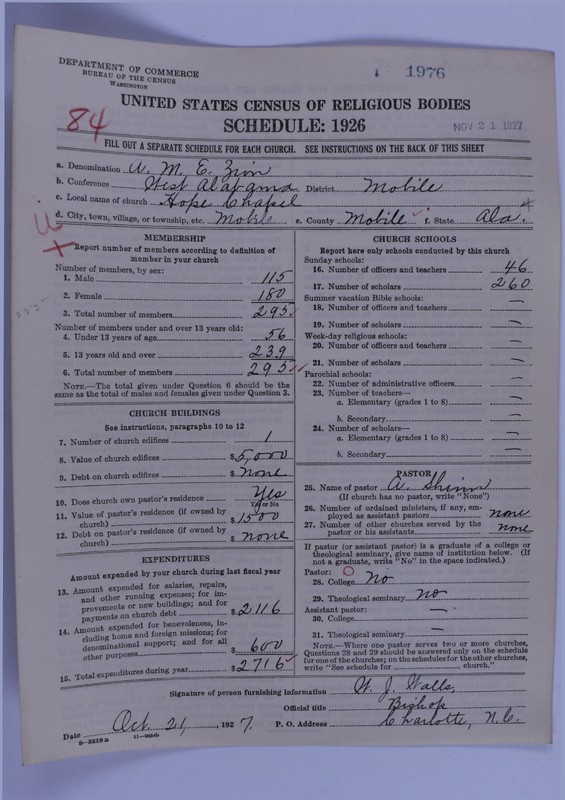 DEPARTMENT OF COMMERCE
BUREAU OF THE CENSUS
WASHINGTON
1976
UNITED STATES CENSUS OF RELIGIOUS BODIES
84
SCHEDULE: 1926
NOV 21 1927
FILL OUT A SEPARATE SCHEDULE FOR EACH CHURCH. SEE INSTRUCTIONS ON THE BACK OF THIS SHEET
a. Denomination A. M. E. Zion
b. Conference West Alabama District Mobile
c. Local name of church Hope Chapel
d. City, town, village, or township, etc. Mobile e. County Mobile f. State Ala.
MEMBERSHIP
Report number of members according to definition of
member in your church
Number of members, by sex:
1. Male 115
2. Female 180
3. Total number of members 295
Number of members under and over 13 years old:
4. Under 13 years of age 56
5. 13 years old and over 239
6. Total number of members 295
NOTE.—The total given under Question 6 should be
same as the total of males and females given under Question 3.
CHURCH BUILDINGS
See instructions, paragraphs 10 to 12
7. Number of church edifices 1
8. Value of church edifices $5,000
9. Debt on church edifices $ None
10. Does church own pastor's residence Yes
Yes or No
11. Value of pastor's residence (if owned by
church) $1500
12. Debt on pastor's residence (if owned by
church) $ none
EXPENDITURES
Amount expended by your church during last fiscal year
13. Amount expended for salaries, repairs,
and other running expenses; for im-
provements or new buildings; and for
payments on church debt $2116
14. Amount expended for benevolences, in-
cluding home and foreign missions; for
denominational support; and for all
other purposes $ 600
15. Total expenditures during year $2716
CHURCH SCHOOLS
Report here only schools conducted by this church
Sunday schools:
16. Number of officers and teachers 46
17. Number of scholars 260
Summer vacation Bible schools:
18. Number of officers and teachers —
19. Number of scholars —
Week-day religious schools:
20. Number of officers and teachers —
21. Number of scholars —
Parochial schools:
22. Number of administrative officers —
23. Number of teachers—
a. Elementary (grades 1 to 8) —
b. Secondary —
24. Number of scholars—
a. Elementary (grades 1 to 8) —
b. Secondary —
PASTOR
25. Name of pastor A. Shinn
(If church has no pastor, write "None")
26. Number of ordained ministers, if any, em-
ployed as assistant pastors none
27. Number of other churches served by the
pastor or his assistants none
If pastor (or assistant pastor) is a graduate of a college or
theological seminary, give name of institution below. (If
not a graduate, write "No" in the space indicated.)
Pastor:
28. College No
29. Theological seminary No
Assistant pastor:
30. College —
31. Theological seminary —
NOTE.—Where one pastor serves two or more churches,
Questions 28 and 29 should be answered only on the schedule
for one of the churches; on the schedules for the other churches,
write "See schedule for church."
Signature of person furnishing information W. J. Walls,
Official title Bishop
Date Oct. 21, , 1927. P. O. Address Charlotte, N.C.